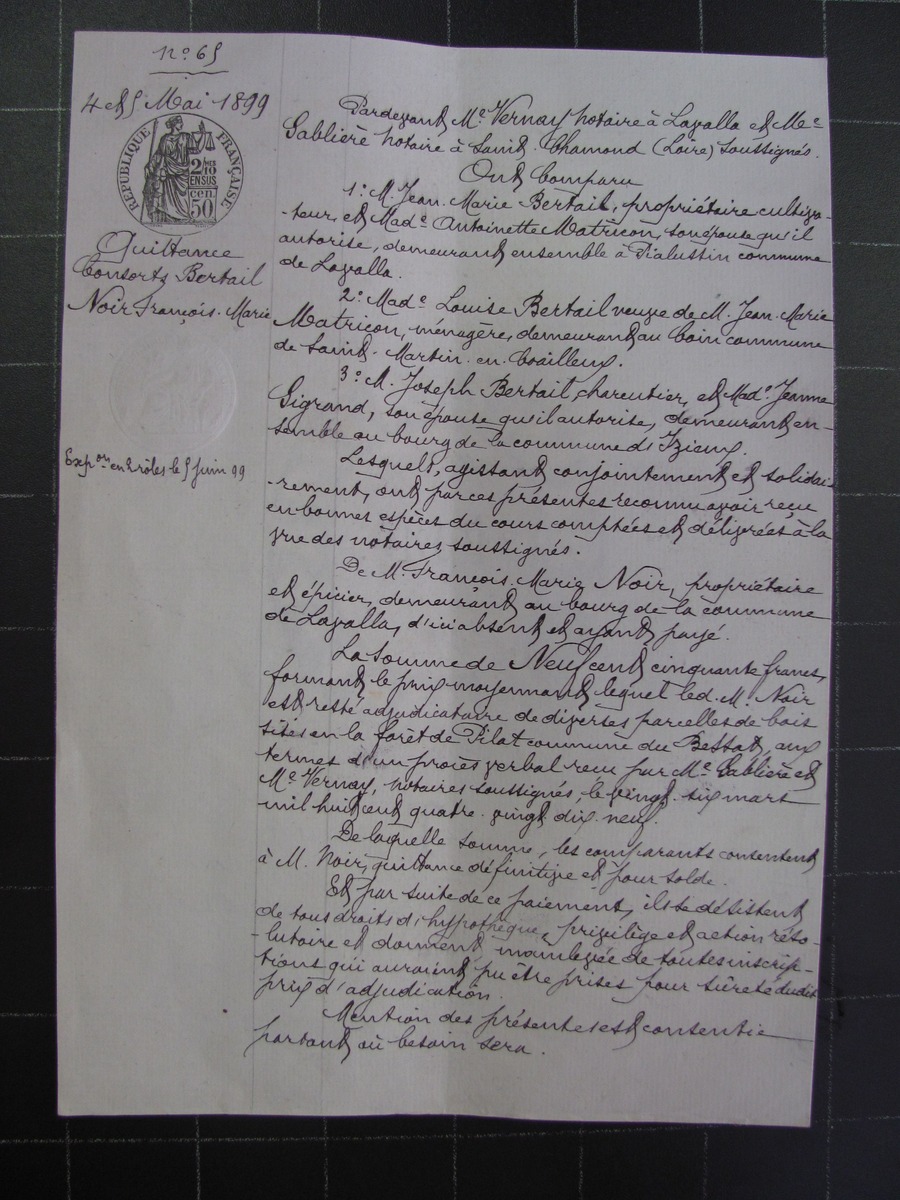 n.° 65
4 et 5 Mai 1899
RÉPUBLIQUE FRANÇAISE
2/10
EN SUS
50 cen.
Quittance
Consorts Bertail
Noir François-Marie
Expon en 2 rôles le 5 juin 99
Pardevant Me Vernay notaire à Lavalla et Me
Sablière notaire à Saint-Chamond (Loire) soussignés.
Ont Comparu
1° M. Jean-Marie Bertail, propriétaire cultiva-
-teur, et Made Antoinette Matricon, son épouse qu'il
autorise, demeurant ensemble à Pialussin commune
de Lavalla.
2° Made Louise Bertail veuve de M. Jean-Marie
Matricon, ménagère, demeurant au Coin commune
de Saint-Martin-en-Coailleux.
3° M. Joseph Bertail, charpentier, et Made Jeanne
Gigrand, son épouse qu'il autorise, demeurant en-
semble au bourg de la commune d'Izieux.
Lesquels, agissant conjointement et solidai-
-rement, ont par ces présentes reconnu avoir reçu
en bonnes espèces du cours comptées et délivrées à la
vue des notaires soussignés.
De M. François-Marie Noir, propriétaire
et épicier, demeurant au bourg de la commune
de Lavalla, d'ici absent et ayant payé.
La somme de Neuf cent cinquante francs,
formant le prix moyennant lequel led. M. Noir
est resté adjudicataire de diverses parcelles de bois
sises en la forêt de Pilat commune du Bessat, aux
termes d'un procès verbal reçu par Me Sablière et
Me Vernay, notaires soussignés, le vingt-six mars
mil huit cent quatre-vingt dix-neuf.
De laquelle somme, les comparants consentent
à M. Noir, quittance définitive et pour solde.
Et par suite de ce paiement, ils se désistent
de tous droits d'hypothèque, privilège et action réso-
-lutoire et donnent mainlevée de toutes inscrip-
-tions qui auraient pu être prises pour sûreté dudit
prix d'adjudication.
Mention des présentes est consentie
partout où besoin sera.